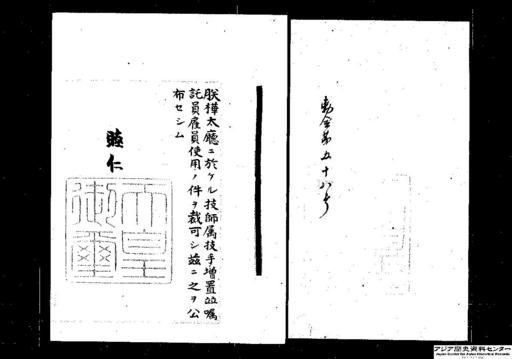 勅令第五十八号
朕樺太廳ニ於ケル技師属技手増置竝囑
託員雇員使用ノ件ヲ裁可シ茲ニ之ヲ公
布セシム
睦仁
天皇
御璽
アジア歴史資料センター
Japan Center for Asian Historical Records